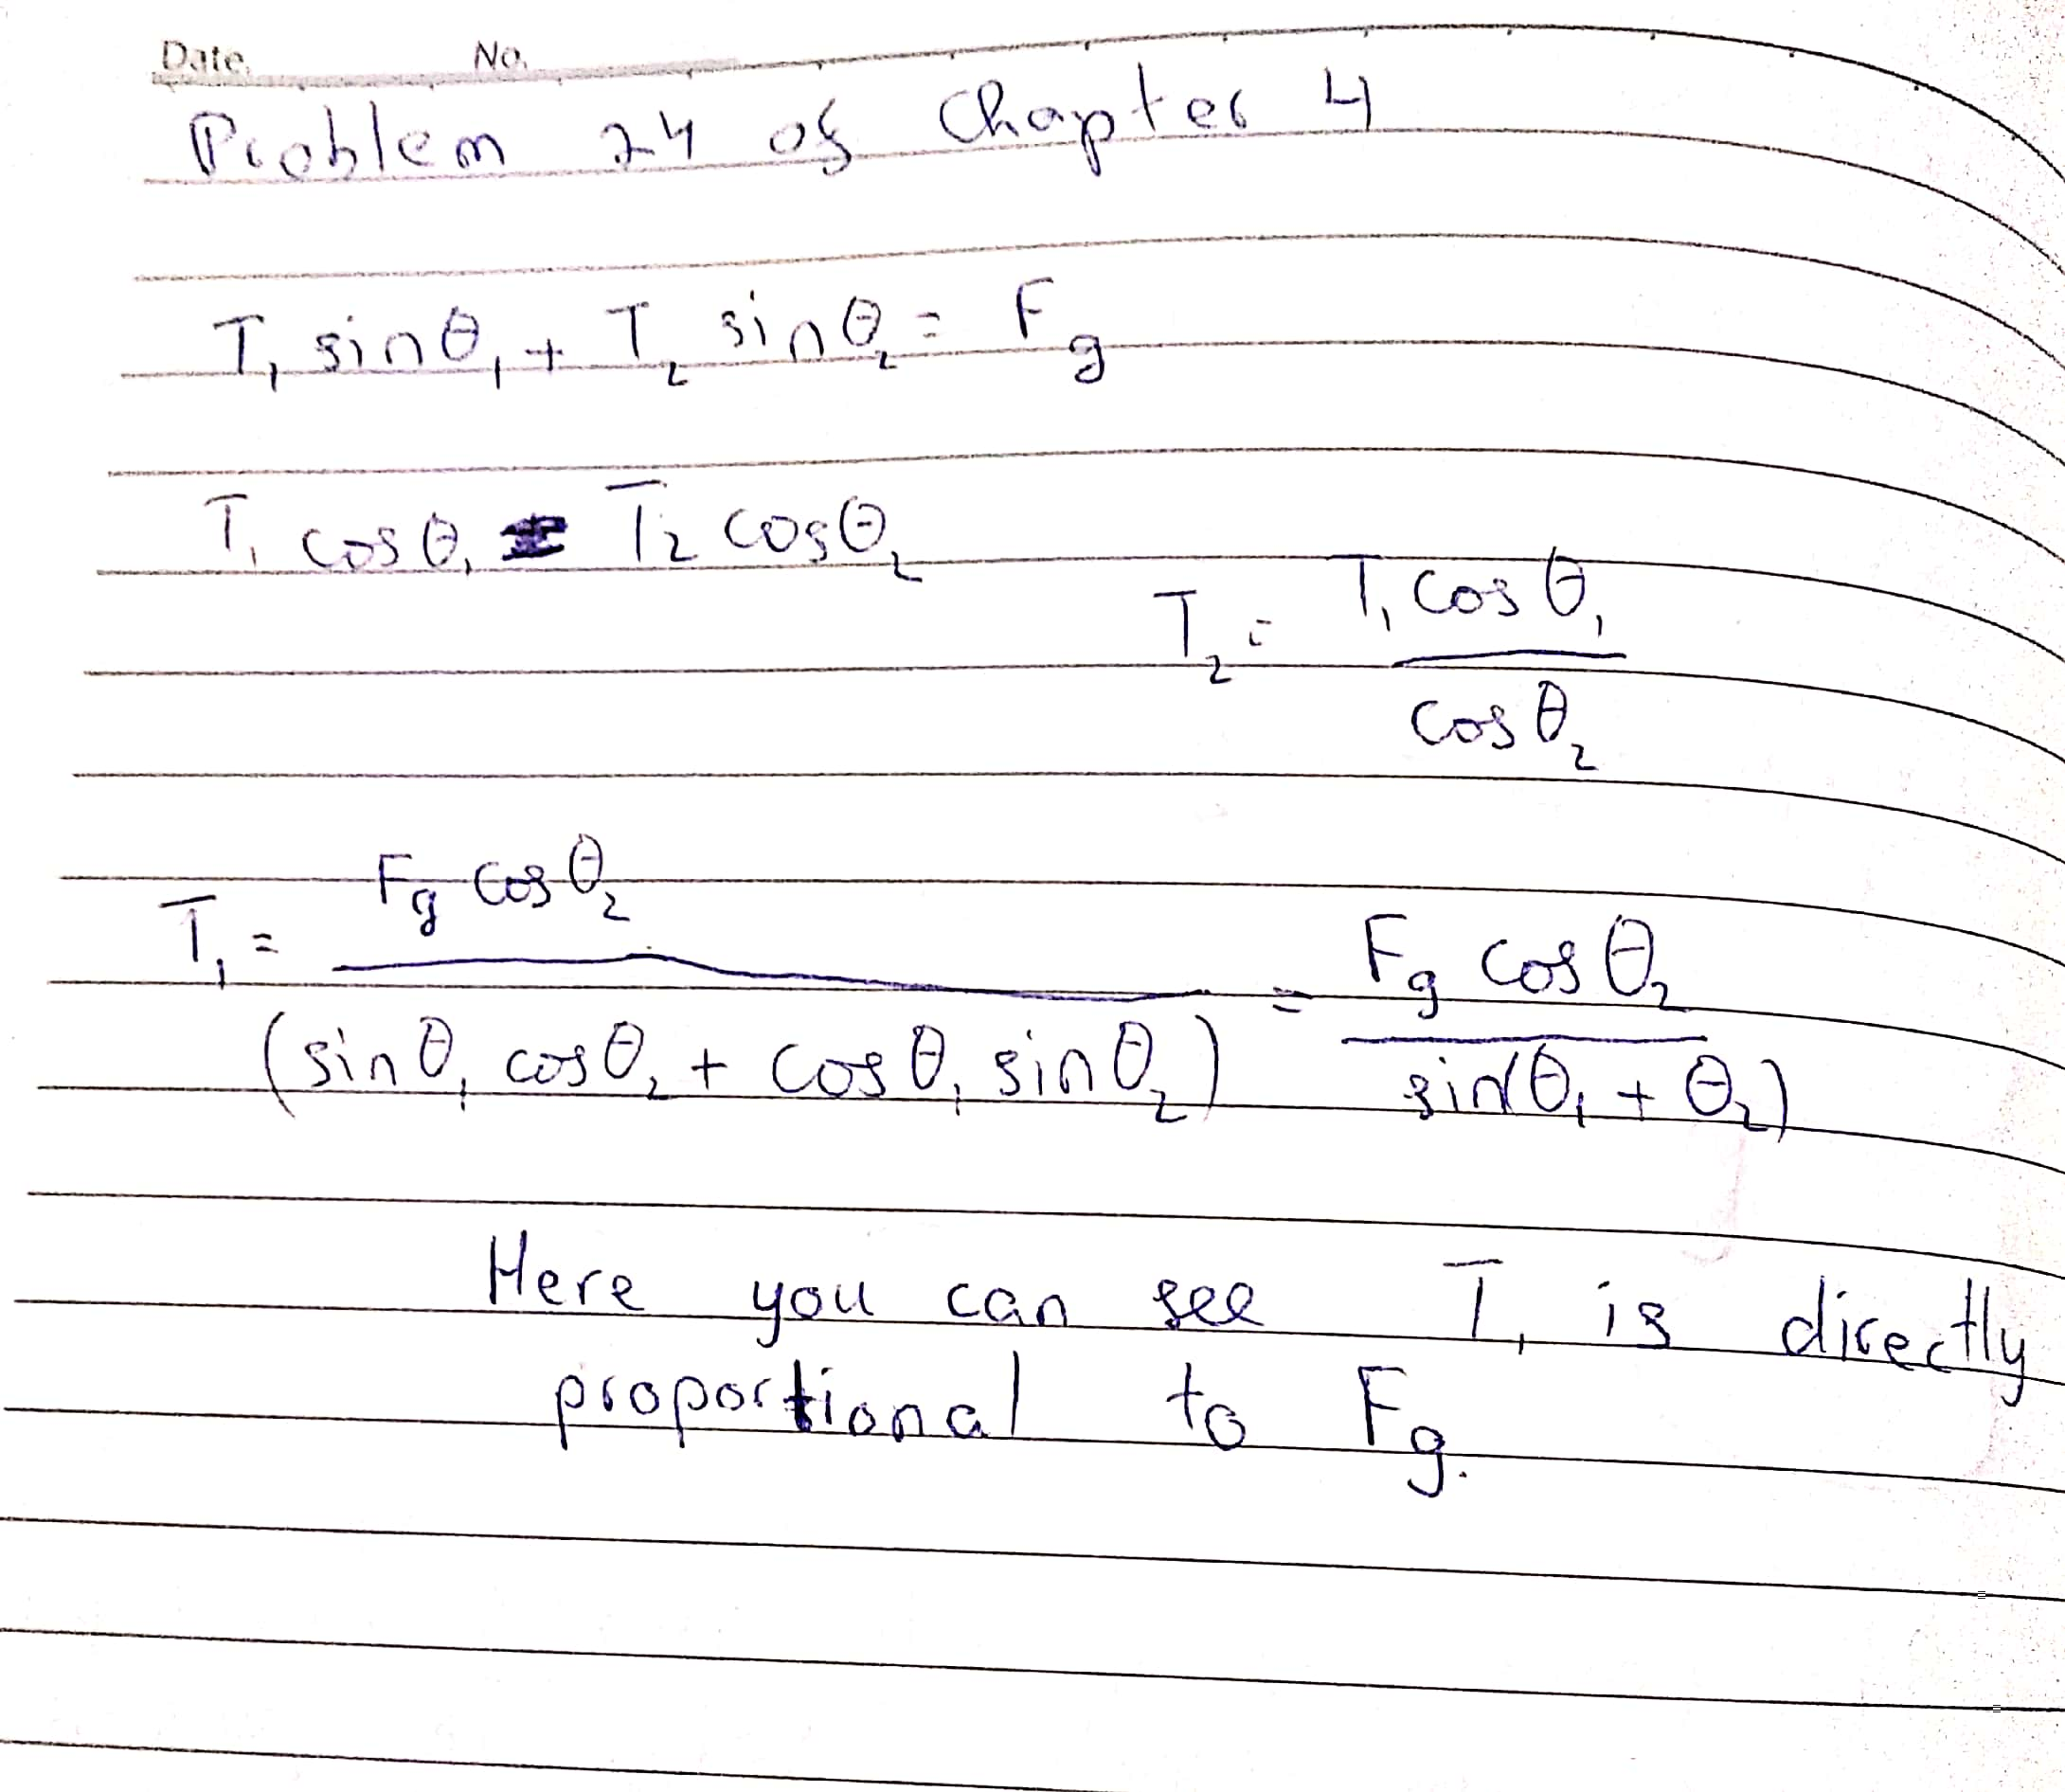 Date. No.
Problem 24 of Chapter 4
T₁ sinθ₁ + T₂ sinθ₂ = Fg
T₁ cosθ₁ = T₂ cosθ₂
T₂ = T₁ cosθ₁ / cosθ₂
T₁ = Fg cosθ₂ / (sinθ₁ cosθ₂ + cosθ₁ sinθ₂) = Fg cosθ₂ / sin(θ₁ + θ₂)
Here you can see T₁ is directly
proportional to Fg.